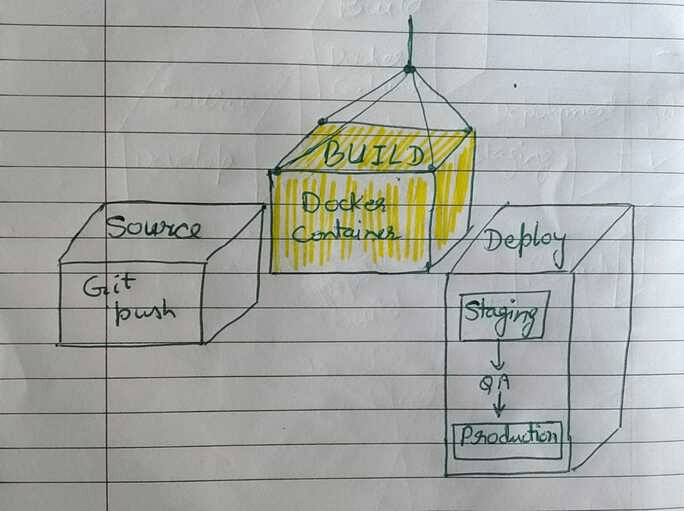 Source
Git
push
BUILD
Docker
Container
Deploy
Staging
QA
Production